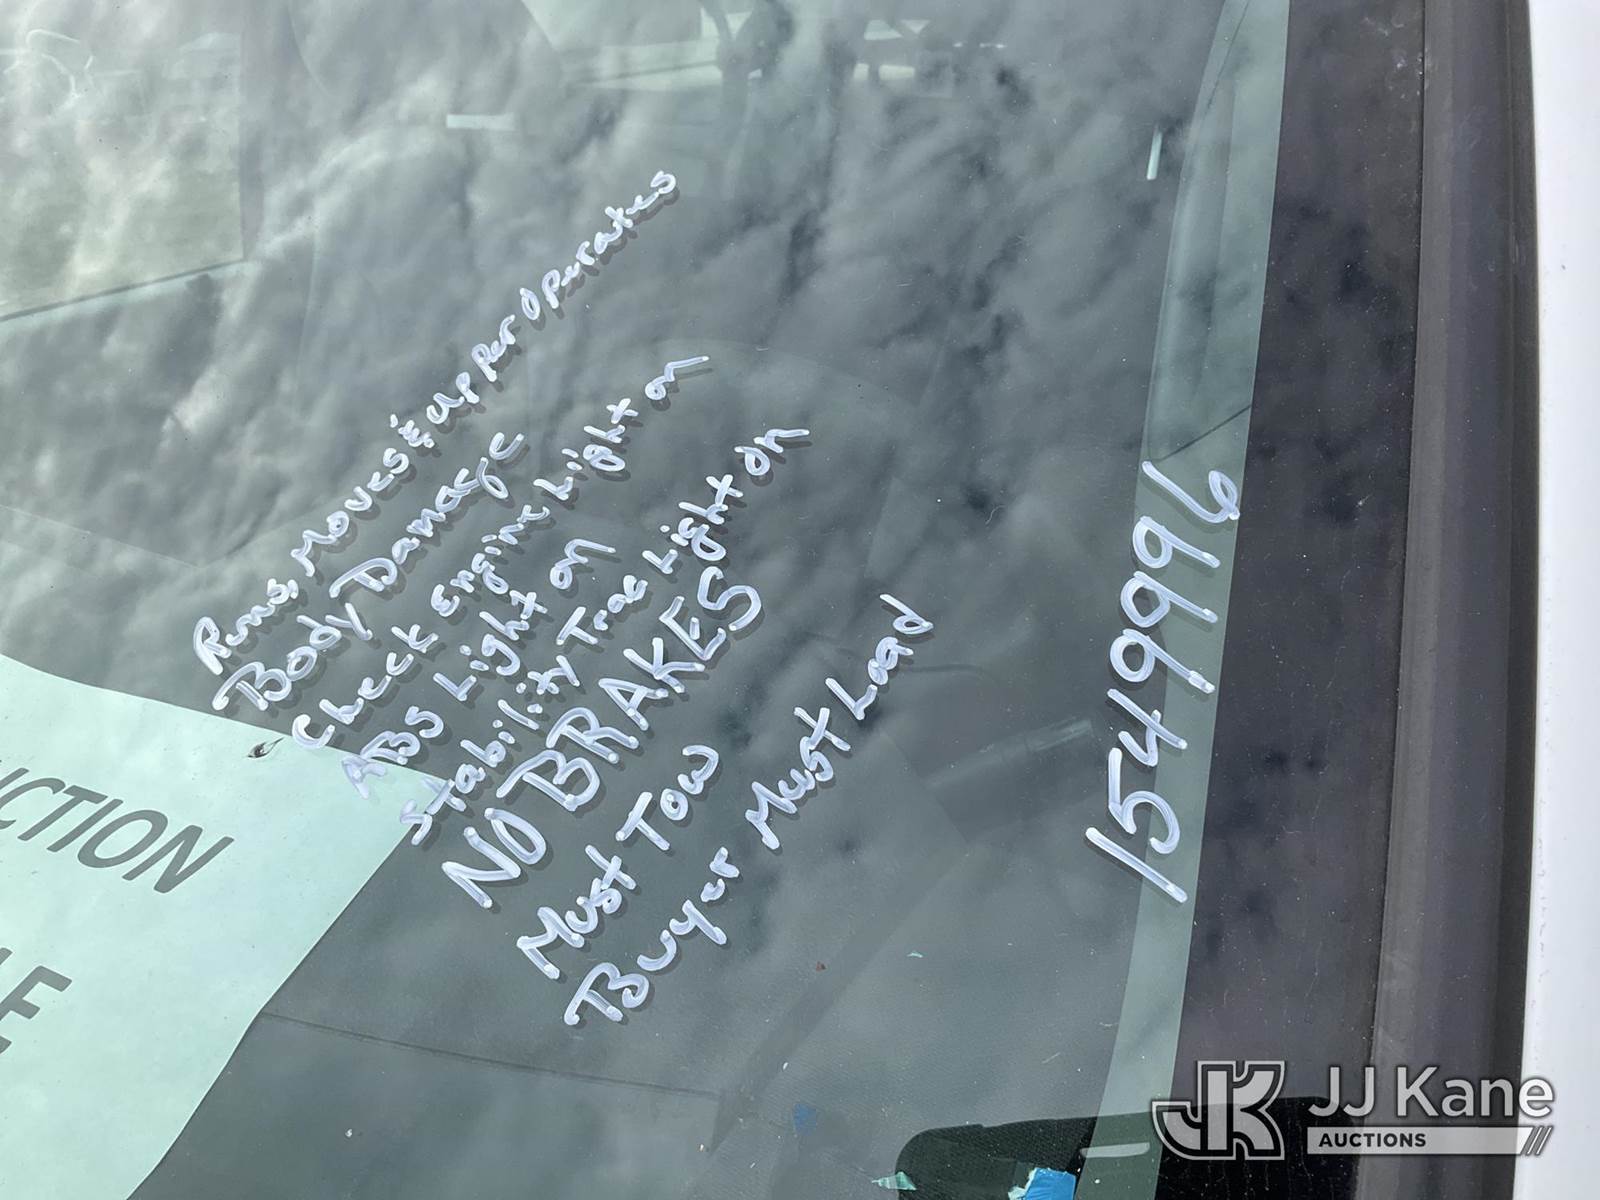 Runs, Moves & Upper Operates
Body Damage
Check Engine Light on
ABS Light on
Stability Trac Light on
NO BRAKES
Must Tow
Buyer Must Load
1549996
JJ Kane
AUCTIONS